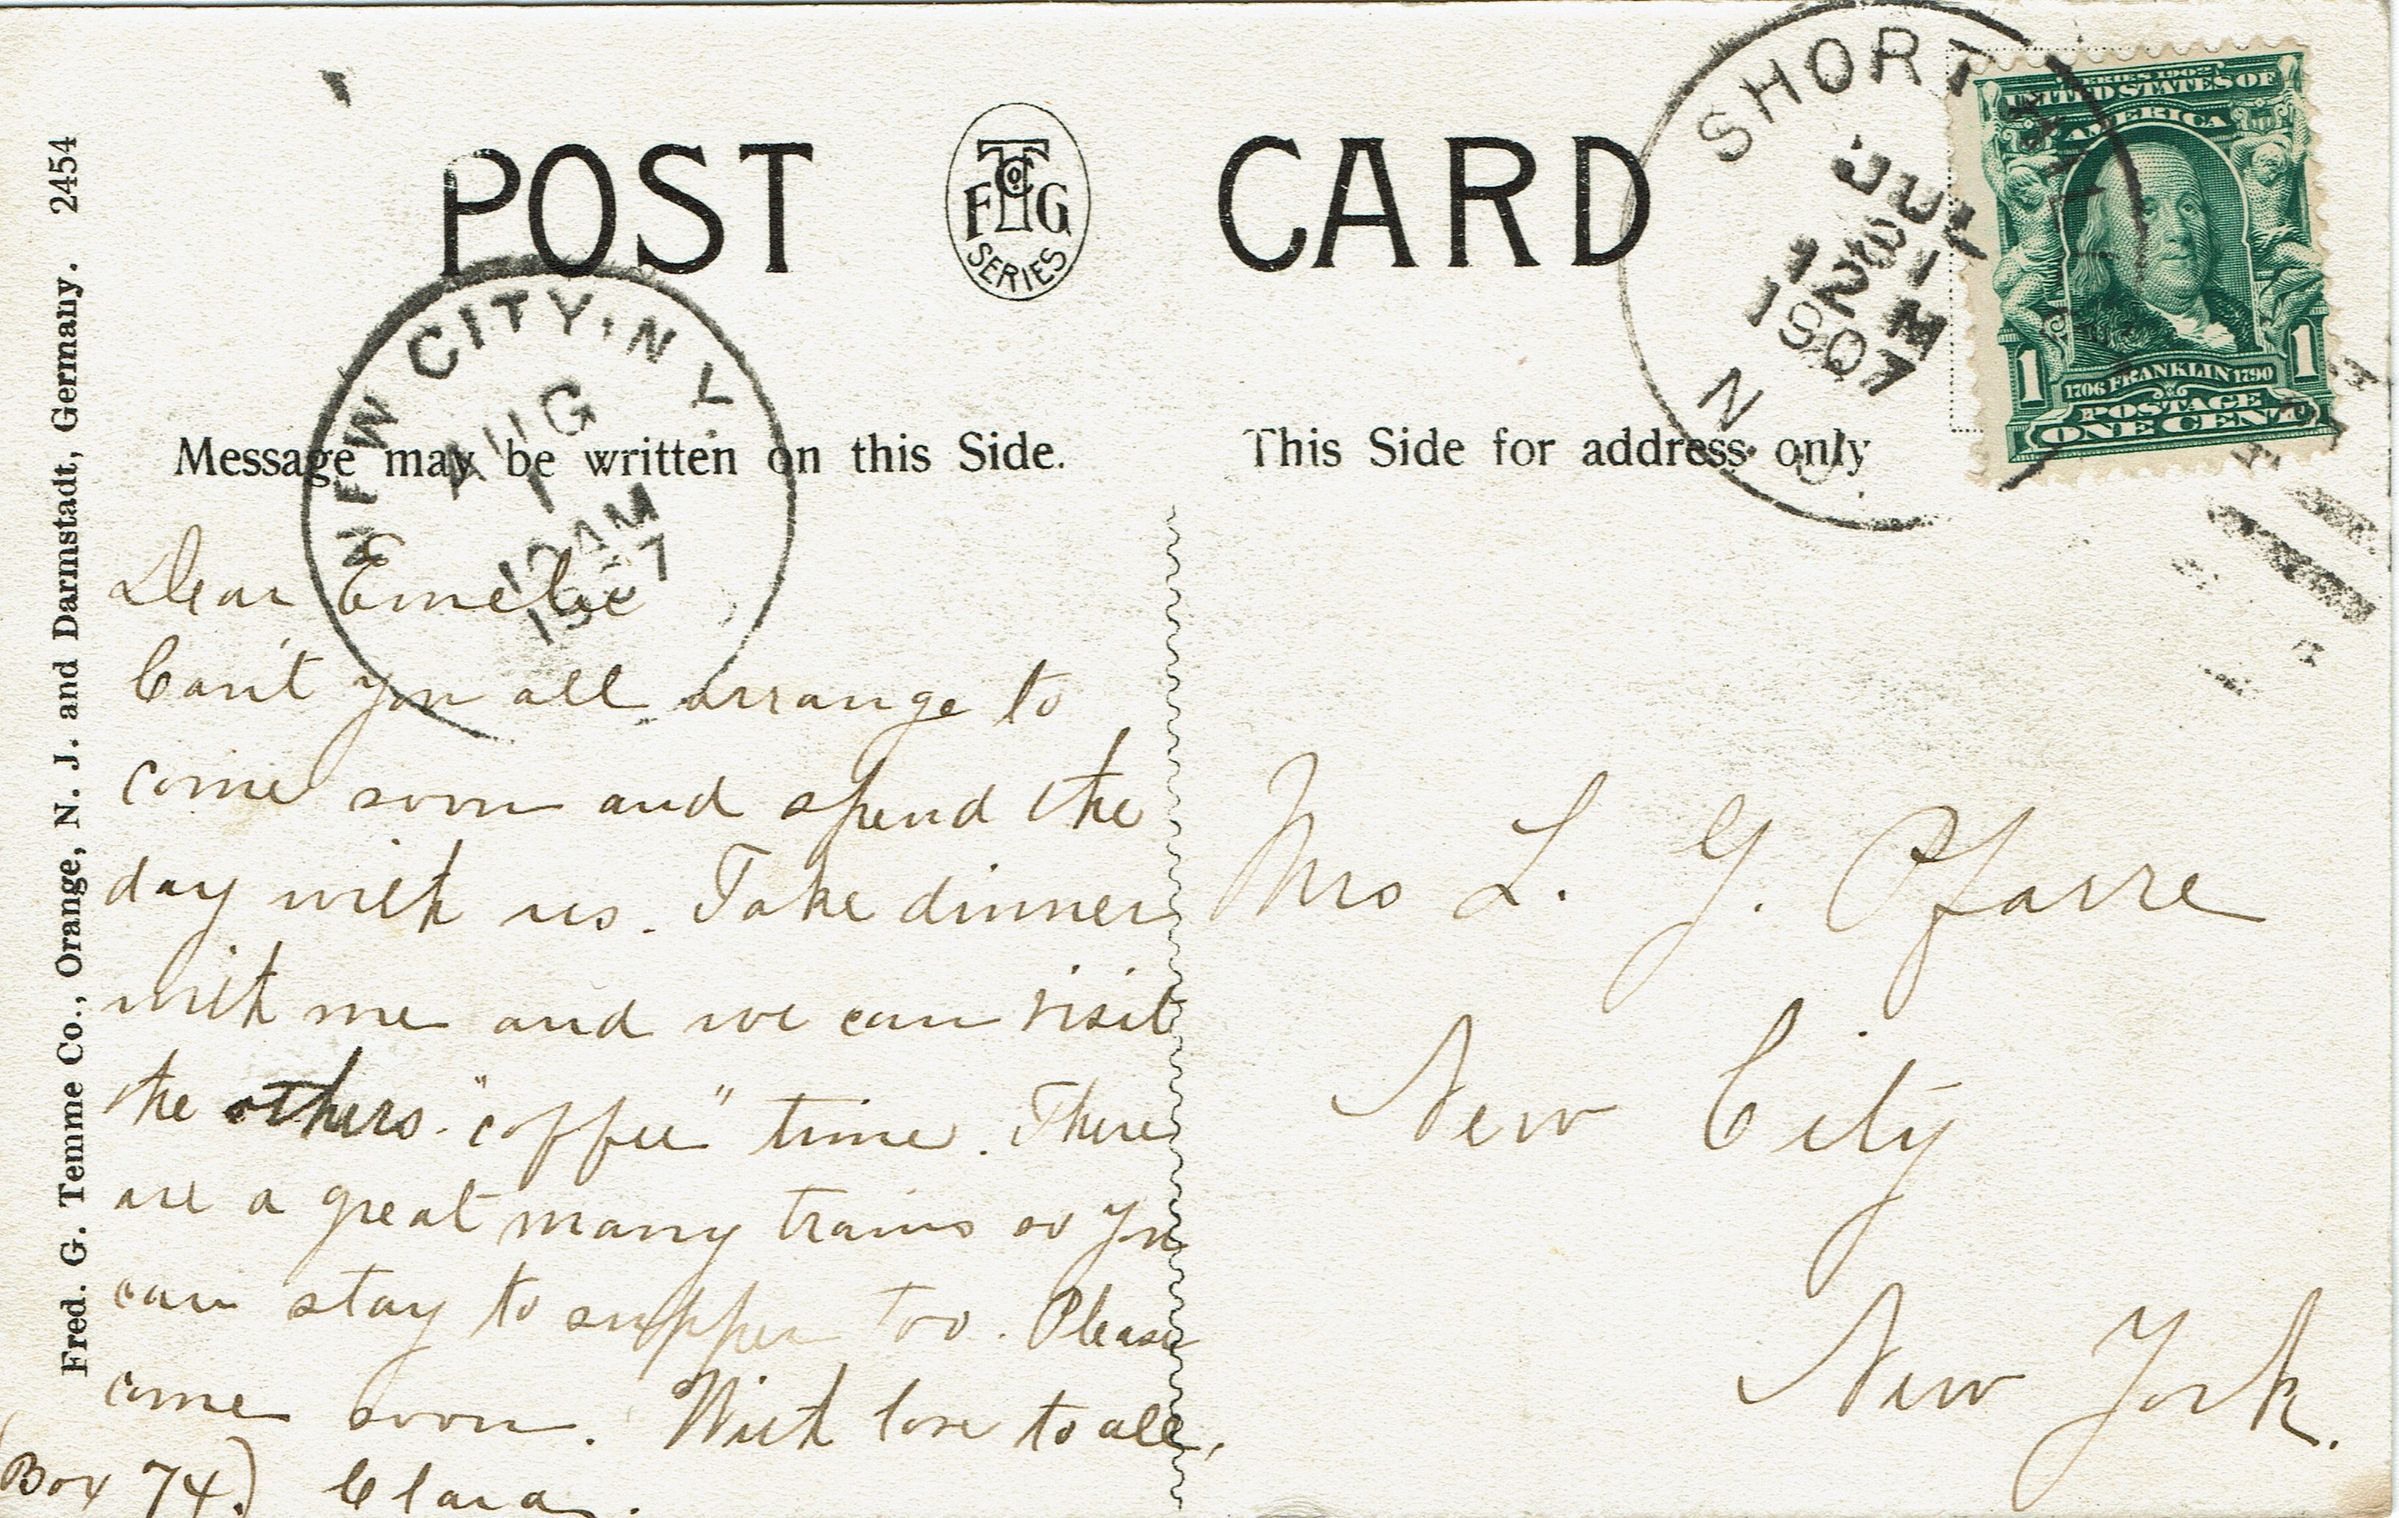 POST CARD
F T Co. G
SERIES
SHORT HILLS
JUL
31
12 M
1907
N. J.
SERIES 1902
UNITED STATES OF
AMERICA
1 1
1706 FRANKLIN 1790
POSTAGE
ONE CENT
NEW CITY, N.Y.
AUG
1
10 AM
1907
Message may be written on this Side.
This Side for address only
Fred. G. Temme Co., Orange, N. J. and Darmstadt, Germany. 2454
Dear Emelie
Can't you all arrange to
come soon and spend the
day with us. Take dinner
with me and we can visit
the others "coffee" time. There
are a great many trains so you
can stay to supper too. Please
come soon. With love to all,
(Box 74.) Clara.
Mrs L. G. Pfarre
New City
New York.